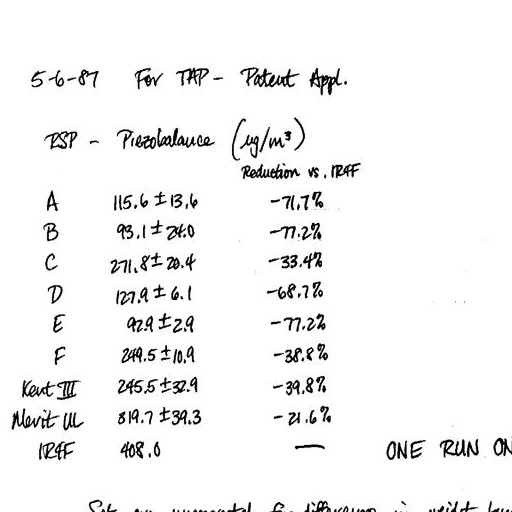 5-6-87 For TAP - Patent Appl.
RSP - Piezobalance (ug/m³)
Reduction vs. IR4F
A 115.6 ± 13.6 -71.7%
B 93.1 ± 24.0 -77.2%
C 271.8 ± 20.4 -33.4%
D 127.9 ± 6.1 -68.7%
E 92.9 ± 2.9 -77.2%
F 249.5 ± 10.9 -38.8%
Kent III 245.5 ± 32.9 -39.8%
Merit UL 319.7 ± 39.3 -21.6%
IR4F 408.0 — ONE RUN ON
differences in weight